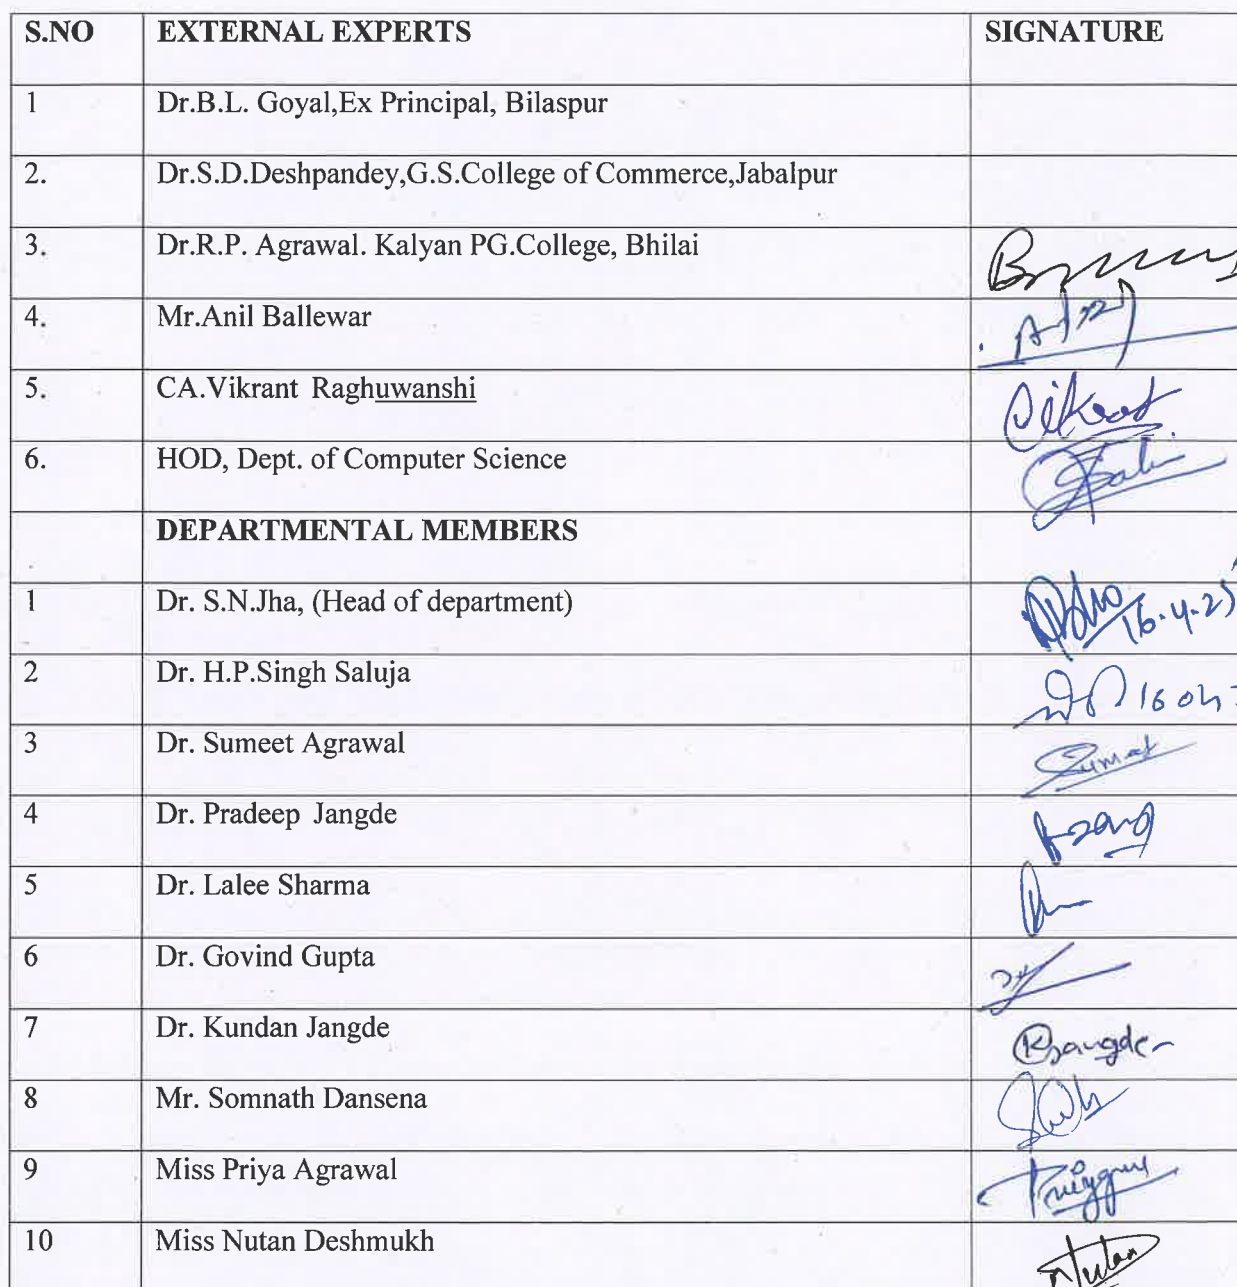 S.NO EXTERNAL EXPERTS SIGNATURE
1 Dr.B.L. Goyal,Ex Principal, Bilaspur
2. Dr.S.D.Deshpandey,G.S.College of Commerce,Jabalpur
3. Dr.R.P. Agrawal. Kalyan PG.College, Bhilai
4. Mr.Anil Ballewar
5. CA.Vikrant Raghuwanshi
6. HOD, Dept. of Computer Science
DEPARTMENTAL MEMBERS
1 Dr. S.N.Jha, (Head of department) 16.4.25
2 Dr. H.P.Singh Saluja 16 04
3 Dr. Sumeet Agrawal Sumeet
4 Dr. Pradeep Jangde
5 Dr. Lalee Sharma
6 Dr. Govind Gupta
7 Dr. Kundan Jangde KJangde
8 Mr. Somnath Dansena
9 Miss Priya Agrawal
10 Miss Nutan Deshmukh Nutan